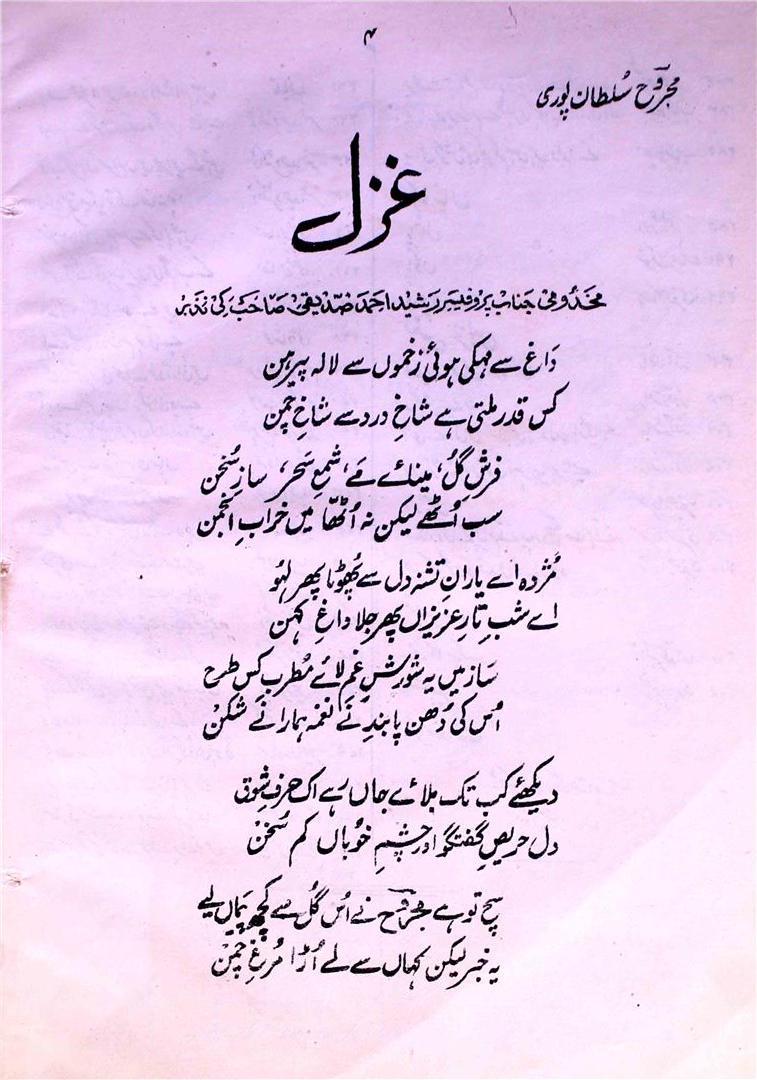 ۴
مجروحؔ سُلطان پوری
غزل
مخدومی جناب پروفیسر رشید احمد صدیقی صاحب کی نذر
داغ سے مہکی ہوئی زخموں سے لالہ پیرہن
کس قدر ملتی ہے شاخِ درد سے شاخِ چمن
فرشِ گُل، مینائے مے، شمعِ سَحر، سازِ سُخن
سب اُٹھے لیکن نہ اُٹھا میں خرابِ انجمن
مُژدہ اے یارانِ تشنہ دل سے پُھوٹا پھر لہُو
اے شبِ تارِ عزیزاں پھر جلا داغِ کہن
سَاز میں یہ شورشِ غم لائے مُطرب کِس طرح
اُس کی دُھن پابندِ نَے نغمہ ہمارا نَے شکن
دیکھئے کب تک بلائے جاں رہے اک حرفِ شوق
دل حریصِ گفتگو اور چشمِ خُوباں کم سُخن
سچ تو ہے مجروحؔ نے اُس گُل سے کچھ پیماں لیے
یہ خبر لیکن کہاں سے لے اُڑا مُرغِ چمن